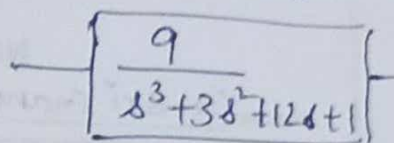 9
s³+3s²+12s+1